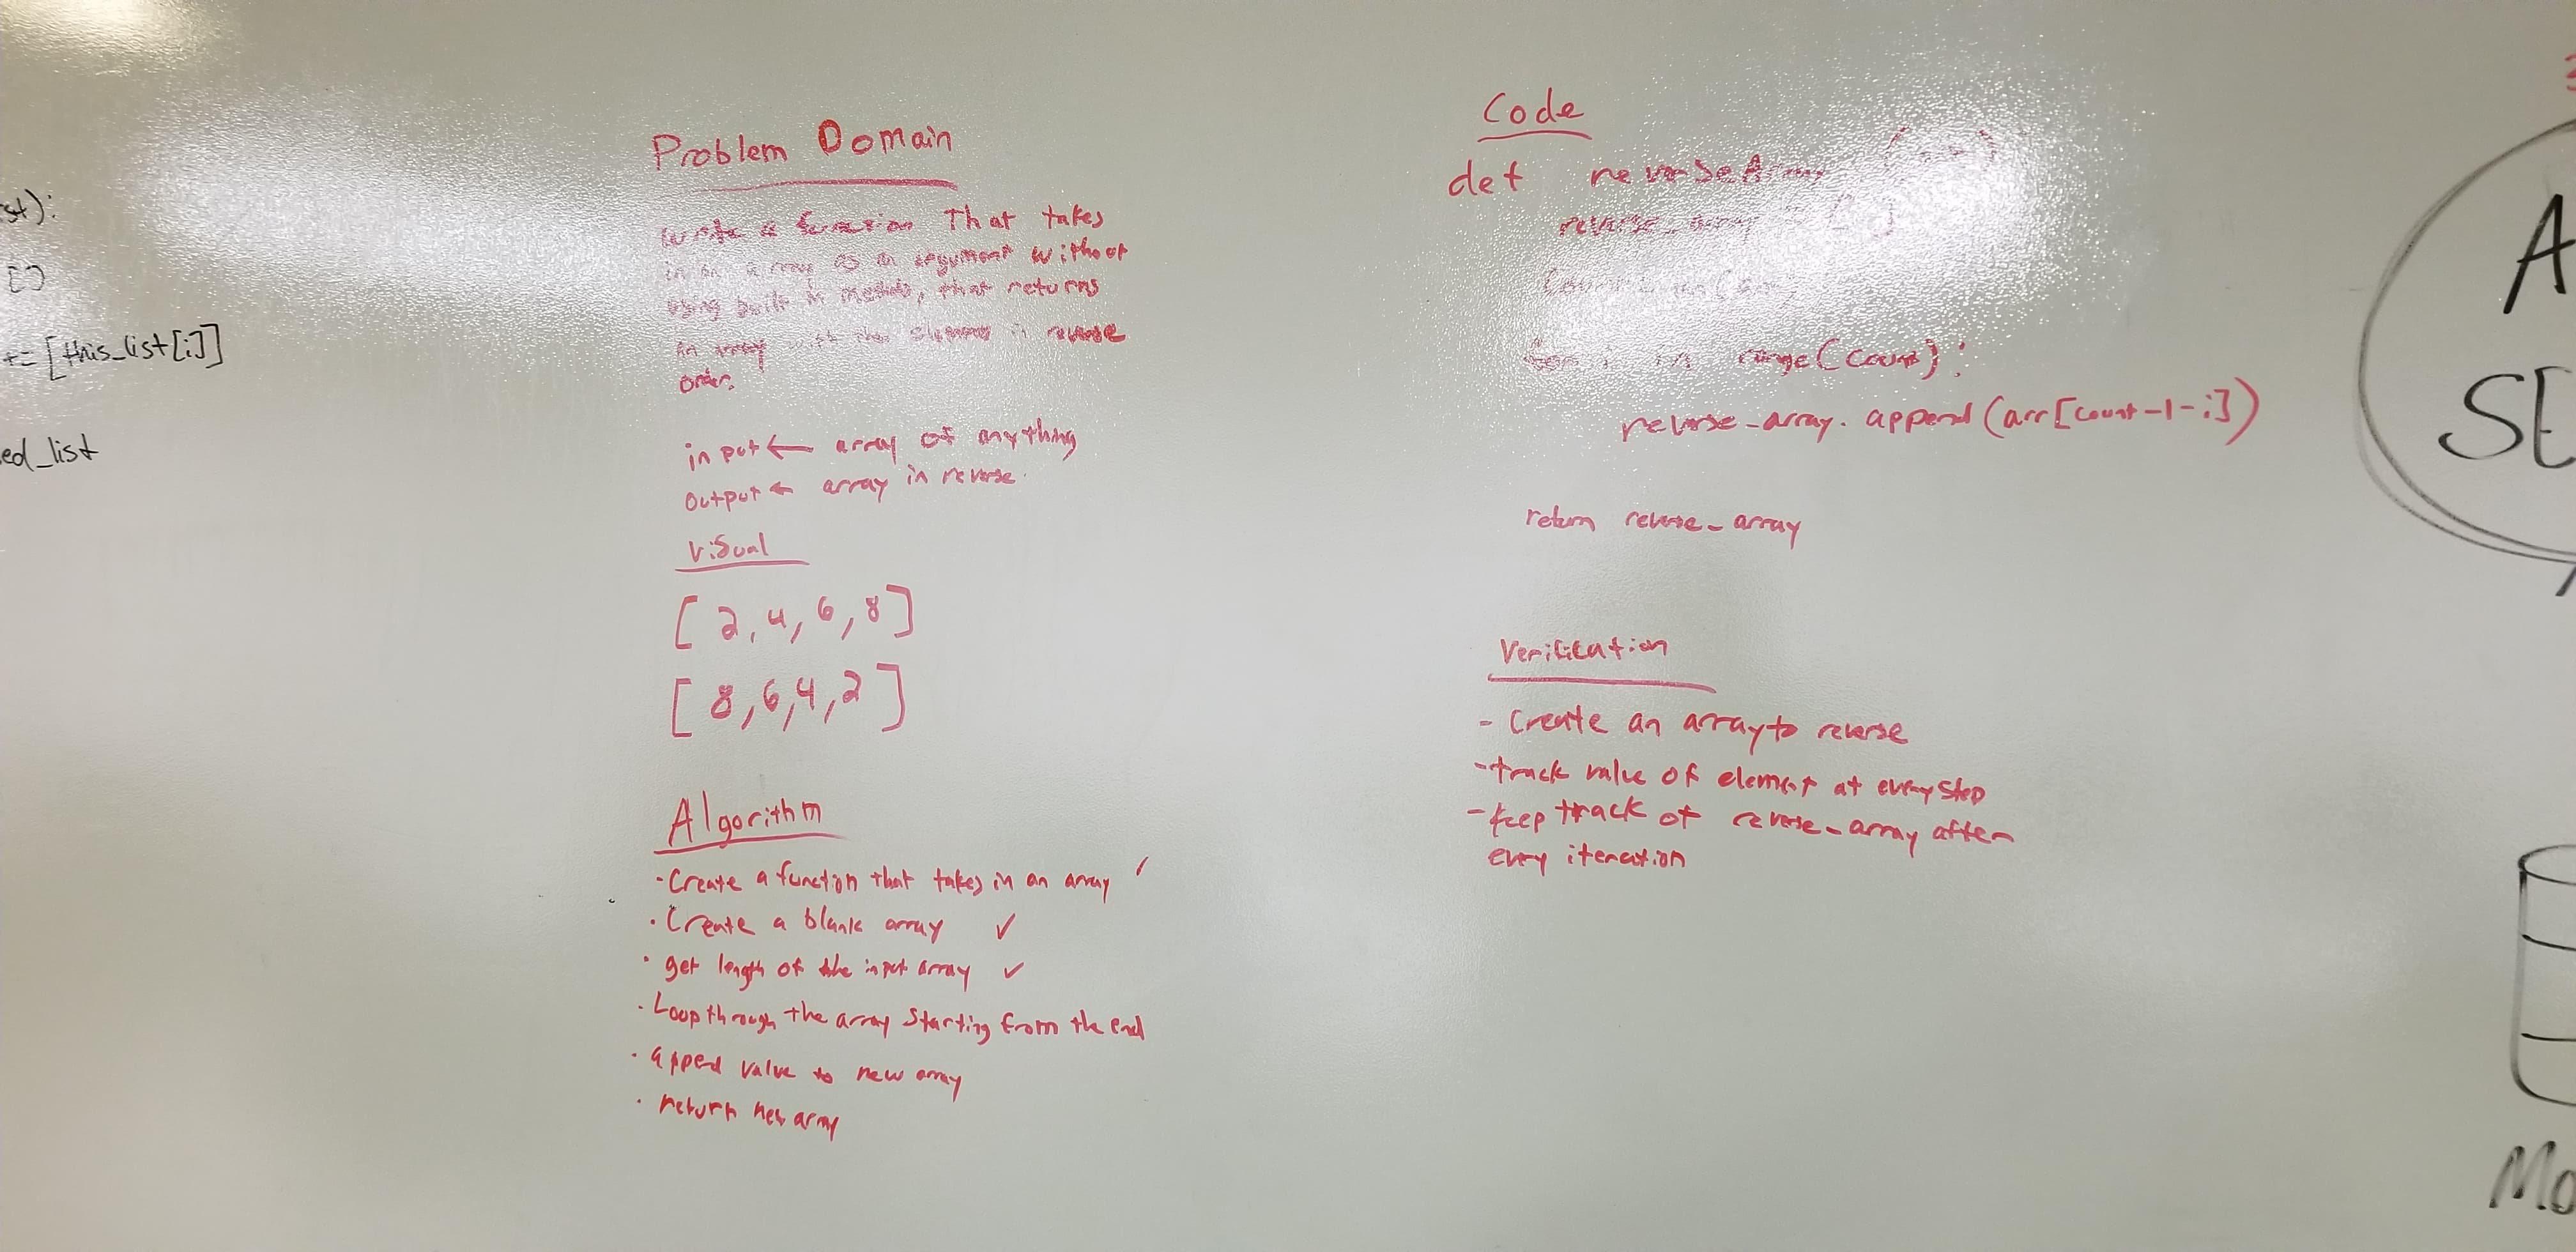 st):
[]
+= [this_list[i]]
ed_list
Problem Domain
write a function That takes
in an array as an argument without
using built in methods, that returns
an array with the elements in reverse
order.
input ← array of anything
output ← array in reverse.
Visual
[ 2, 4, 6, 8 ]
[ 8, 6, 4, 2 ]
Algorithm
- Create a function that takes in an array ✓
· Create a blank array ✓
· get length of the input array ✓
· Loop through the array starting from the end
· append value to new array
· return new array
Code
def reverseArray (arr)
reverse_array = []
count = len(arr)
for i in range(count):
reverse_array. append(arr[count-1-i])
return reverse_array
Verification
- Create an array to reverse
- track value of element at every step
- keep track of reverse_array after
every iteration
A
SE
Mo